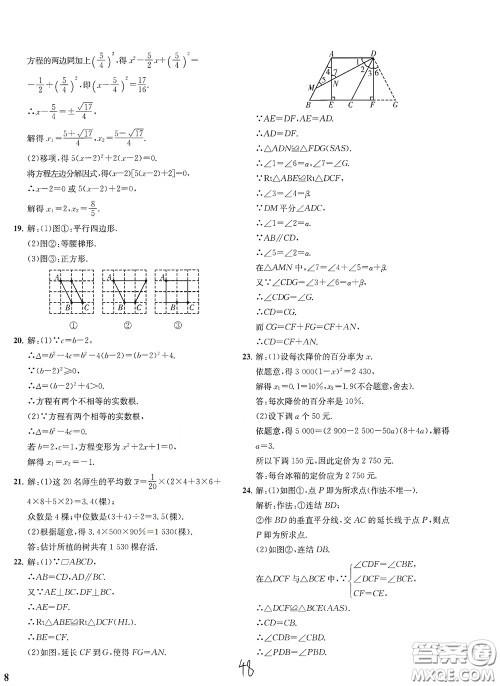 方程的两边同加上(5/4)²,得x²-5/2x+(5/4)²=
-1/2+(5/4)²,即(x-5/4)²=17/16.
∴x-5/4=±√17/4
解得x₁=(5+√17)/4,x₂=(5-√17)/4.
(2)移项,得5(x-2)²+2(x-2)=0.
将方程左边分解因式,得(x-2)[5(x-2)+2]=0
∴x-2=0或5(x-2)+2=0.
解得x₁=2,x₂=8/5.
19. 解:(1)图①:平行四边形.
(2)图②:等腰梯形.
(3)图③:正方形.
A B C
A B C
A B C
① ② ③
20. 解:(1)∵c=b-2,
∴Δ=b²-4c=b²-4(b-2)=(b-2)²+4.
∵(b-2)²≥0,
∴Δ=(b-2)²+4>0.
∴方程有两个不相等的实数根.
(2)∵方程有两个相等的实数根,
∴Δ=b²-4c=0.即b²=4c.
若b=2,c=1,方程变形为x²+2x+1=0,
解得x₁=x₂=-1.
21. 解:(1)这20名师生的平均数x̄=1/20×(2×4+3×6+
4×8+5×2)=3.4(棵);
众数是4棵;中位数是(3+4)÷2=3.5(棵).
(2)根据题意,得3.4×500×90%=1 530(棵).
答:估计所植的树共有1 530棵存活.
22. 解:(1)∵□ABCD,
∴AB=CD,AD∥BC.
又∵AE⊥BC,DF⊥BC,
∴AE=DF.
∴Rt△ABE≌Rt△DCF(HL).
∴BE=CF.
(2)如图,延长CF到G,使得FG=AN.
A D
M N
B E C F G
∵AE=DF,AE=AD,
∴AD=DF.
∴△ADN≌△FDG(SAS).
∴∠1=∠6=α,∠5=∠G.
∵Rt△ABE≌Rt△DCF,
∴∠3=∠4=β.
∵DM平分∠ADC,
∴∠1=∠2=α.
∵AB∥CD,
∴∠8=∠2=α.
在△AMN中,∠7=∠4+∠5=α+β.
又∵∠CDG=∠3+∠6=α+β,
∴∠CDG=∠G.
∴CD=CG.
而CG=CF+FG=CF+AN,
∴CD=CF+AN.
23. 解:(1)设每次降价的百分率为x.
依题意,得3 000(1-x)²=2 430,
解得x₁=0.1=10%,x₂=1.9(不合题意,舍去).
答:每次降价的百分率是10%.
(2)设下调a个50元.
依题意,得5 000=(2 900-2 500-50a)(8+4a),解得
a=3.
所以下调150元,因此定价为2 750元.
答:每台冰箱的定价应为2 750元.
24. 解:(1)如图①,点P即为所求点(作法不唯一).
解析:作法:①连结BD;
②作BD的垂直平分线,交AC的延长线于点P,则点
P即为所求点.
(2)如图②,连结DB.
在△DCF与△BCE中,∵{∠CDF=∠CBE,∠DCF=∠BCE,CF=CE,
∴△DCF≌△BCE(AAS).
∴CD=CB.
∴∠CDB=∠CBD.
∴∠PDB=∠PBD.
48
8